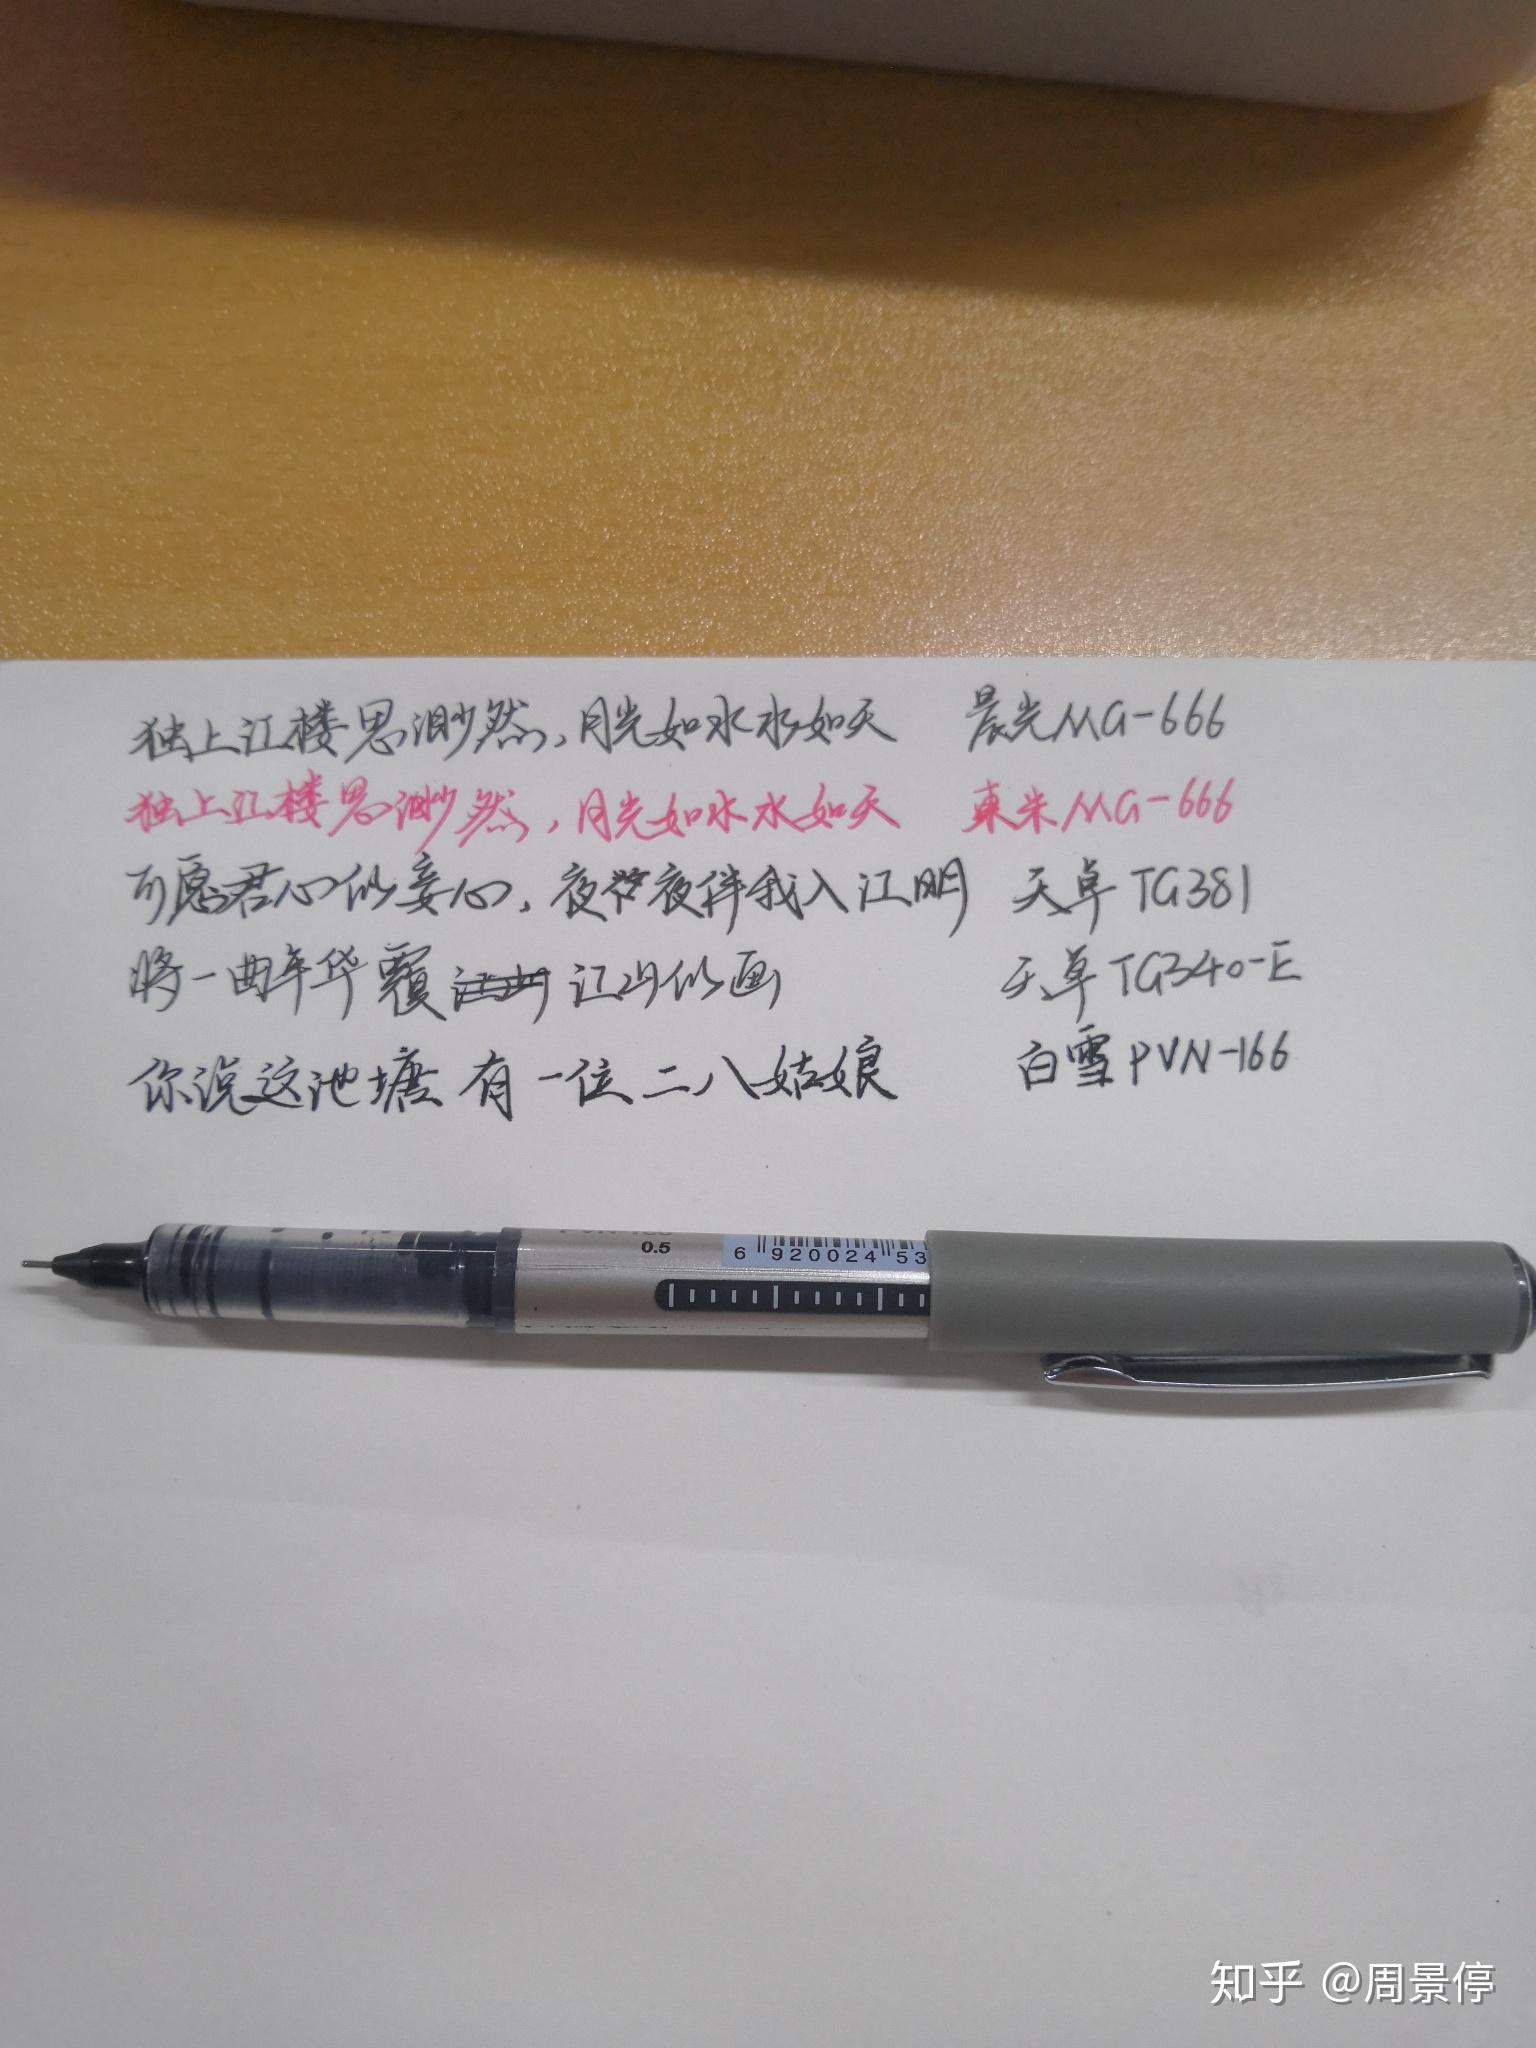 独上江楼思渺然，月光如水水如天 晨光MG-666
独上江楼思渺然，月光如水水如天 東米MG-666
可愿君心似妾心，夜夜伴我入江明 天卓TG381
将一曲年华覆 江山似画 天卓TG340-E
你说这池塘有一位二八姑娘 白雪PVN-166
0.5
6 920024 53
知乎 @周景停